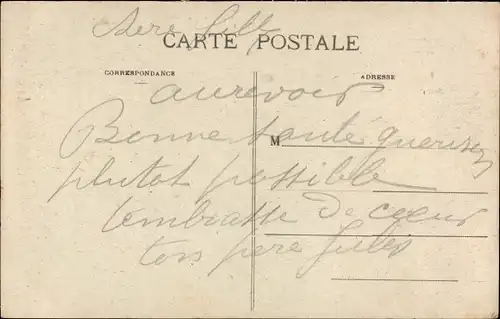 CARTE POSTALE
CORRESPONDANCE
ADRESSE
aurevoir
Bonne santé
M
plutot possible
tembrasse de cœur
ton père Jules